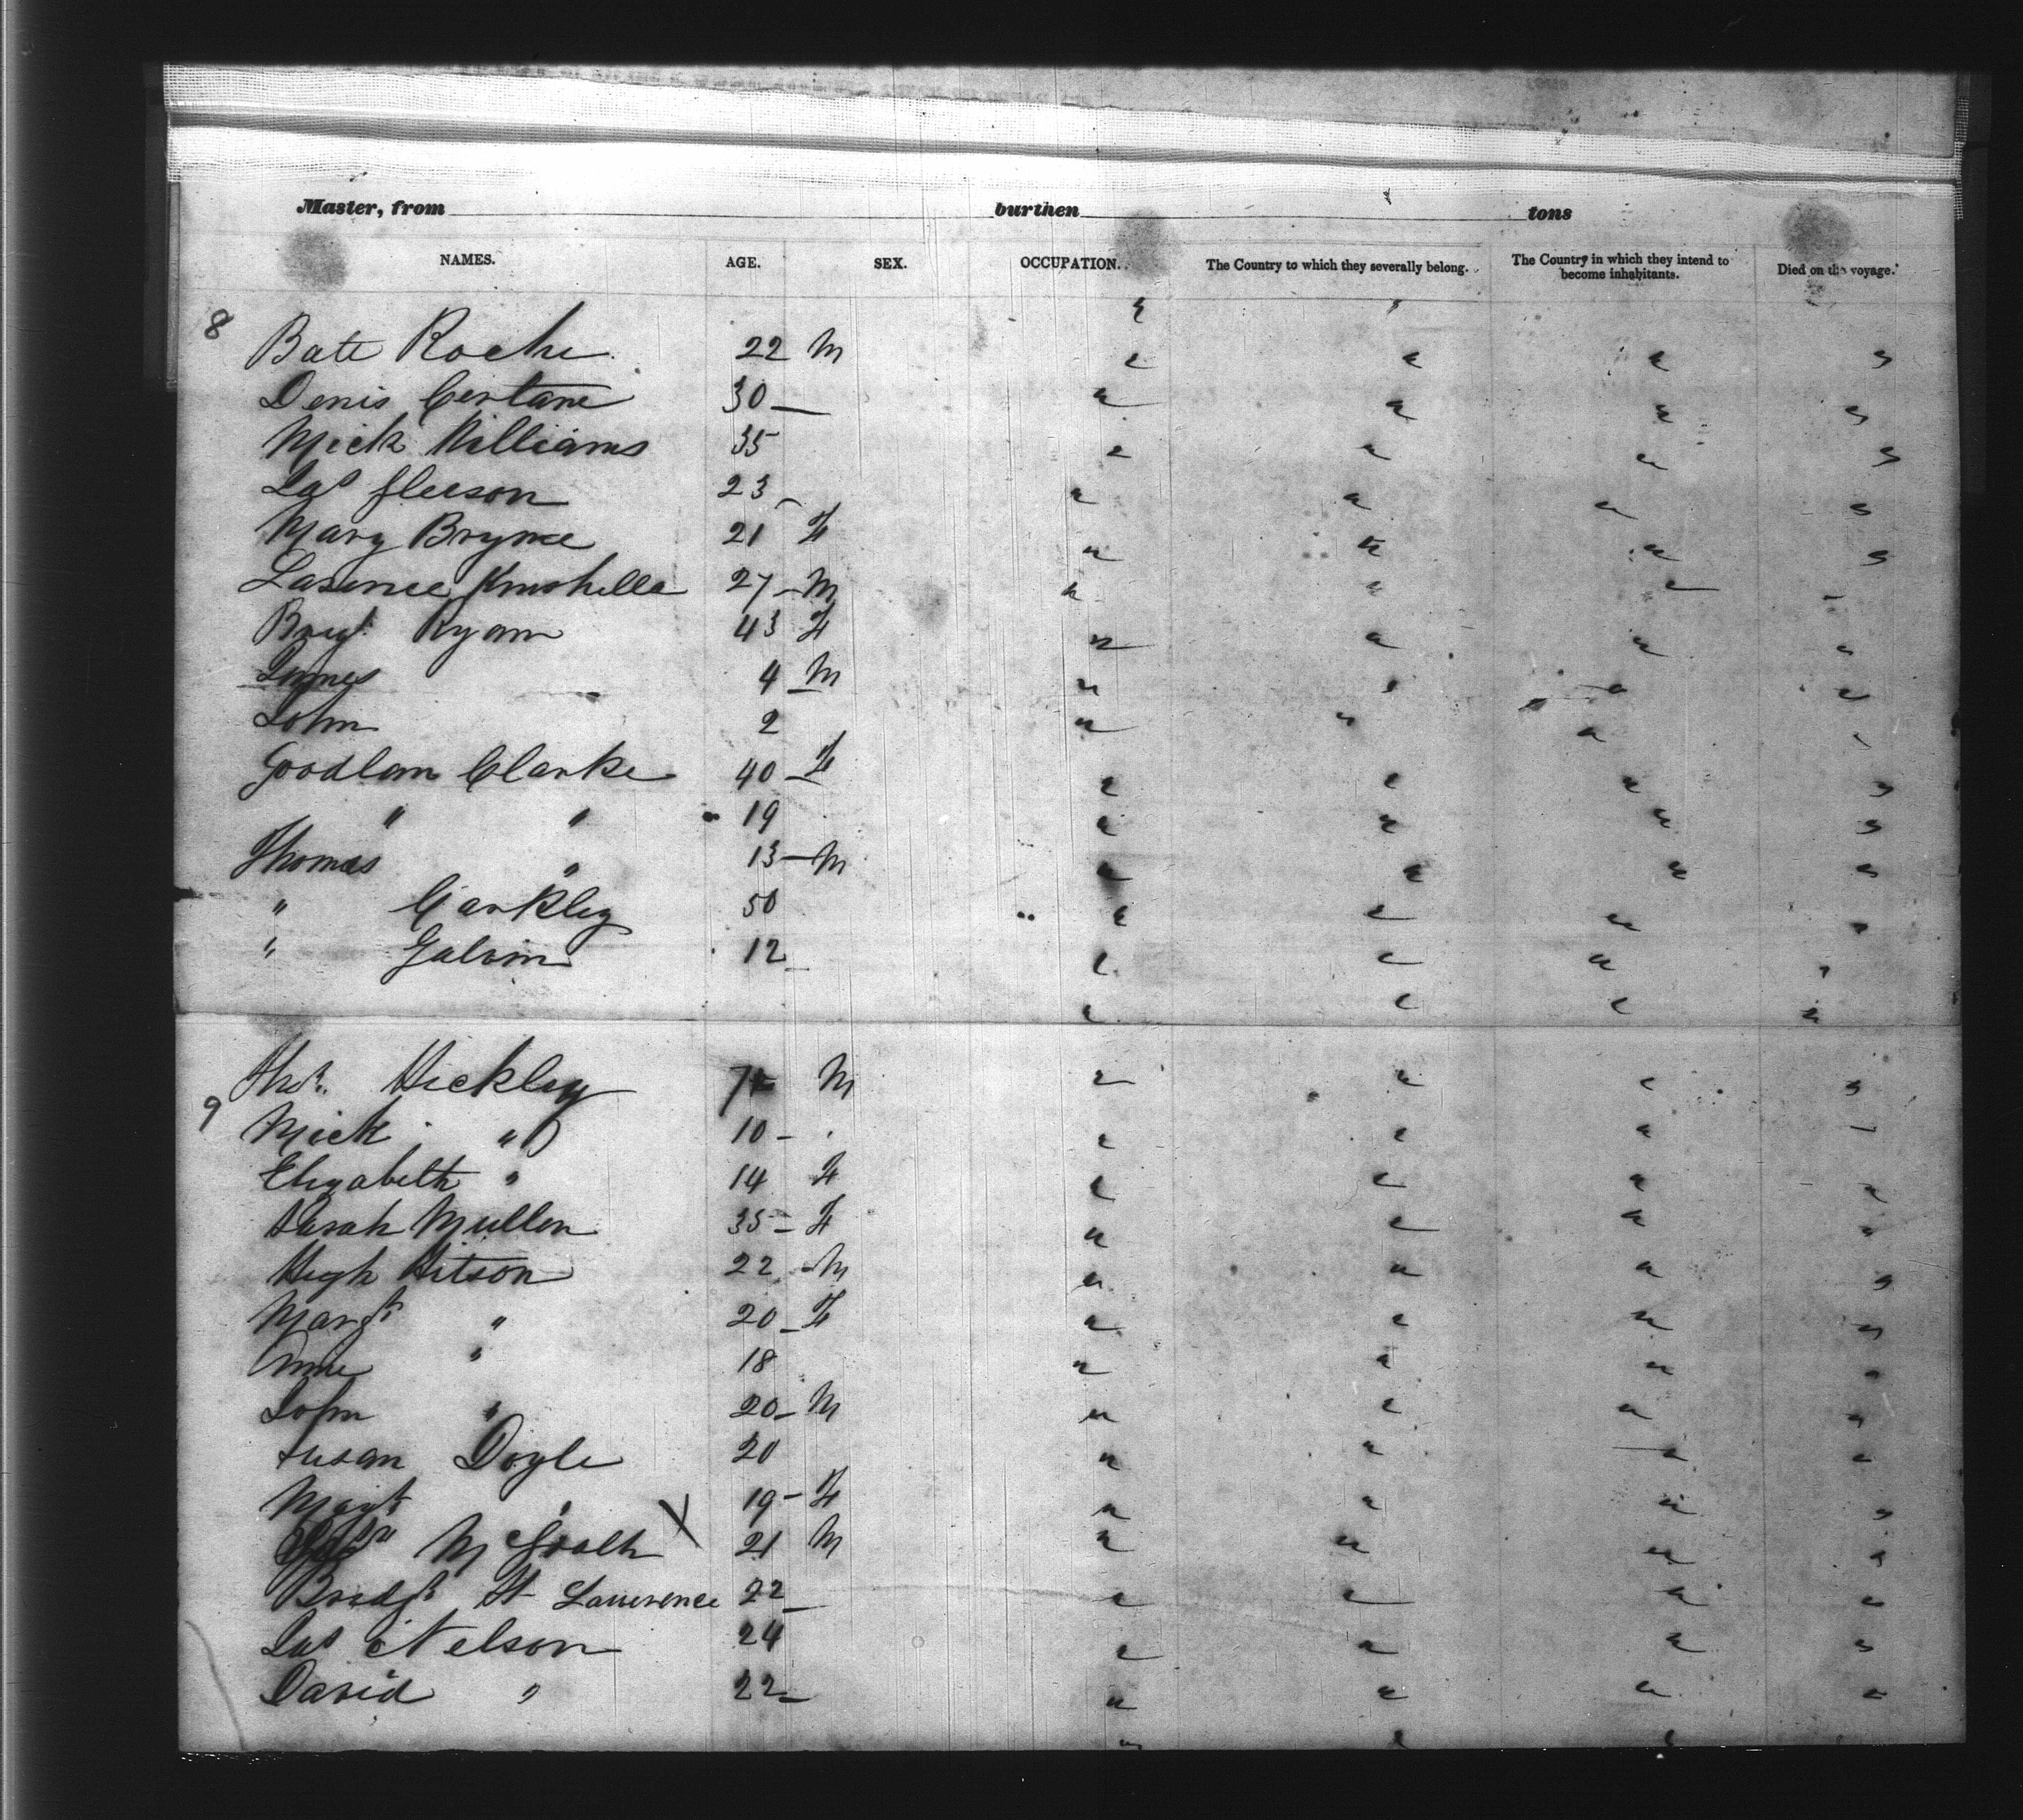 Master, from burthen tons
NAMES. AGE. SEX. OCCUPATION. The Country to which they severally belong. The Country in which they intend to become inhabitants. Died on the voyage.
8 Bate Roche 22 M
Denis 30
Mick Williams 35
Jas Gleeson 23
Mary Bryne 21 F
27 M
Brigt Ryan 43 F
James 4 M
John 2
Clarke 40 F
" " 19
Thomas " 13 M
" Carkley 50
" Galvin 12
Thos. Hickley M
9 Mick " 10
Elizabeth " 14 F
Sarah Mullen 35 F
Hugh Hitson 22 M
Margt " 20 F
Anne " 18
John " 20 M
Susan Doyle 20
Margt " 19 F
McGrath X 21 M
Bridgt St Lawrence 22
Jas Nelson 24
David " 22